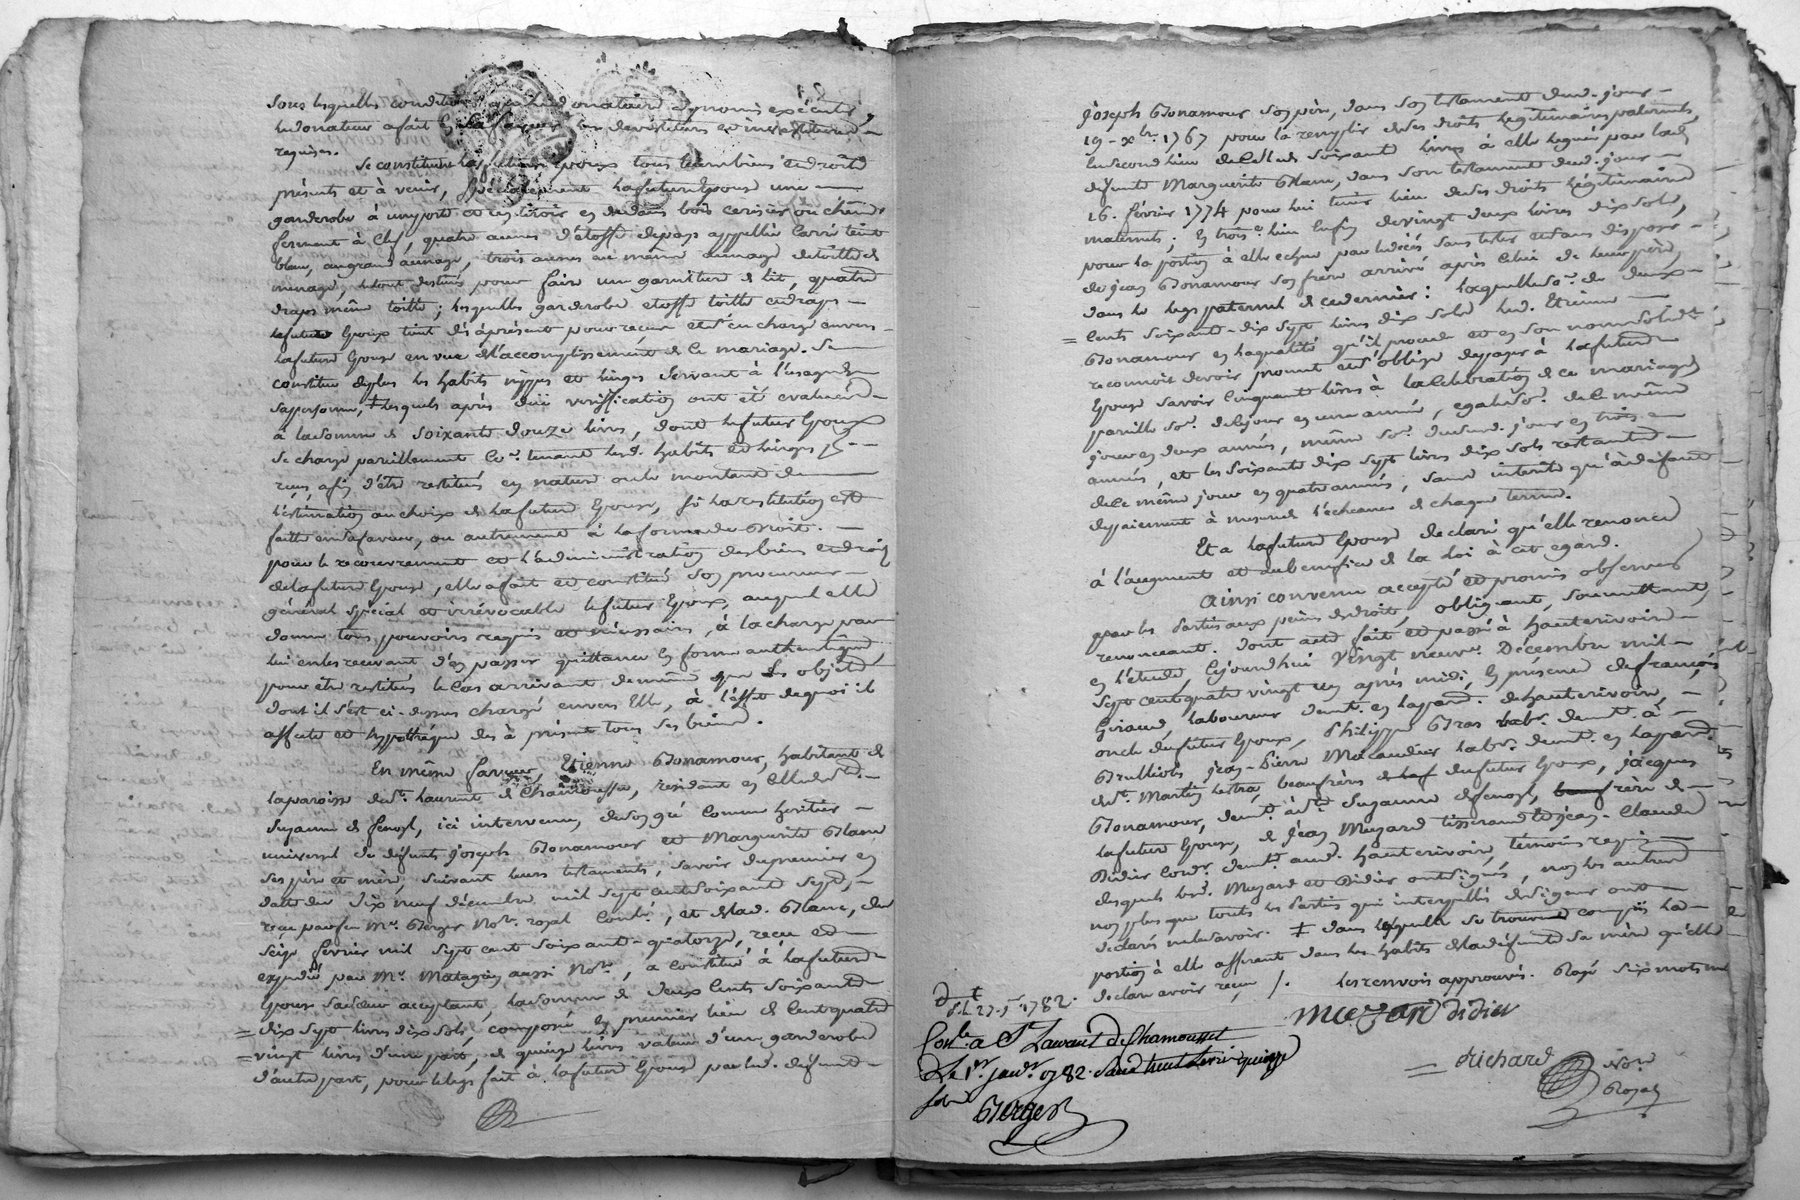 sous lesquelles conditions que led. donataire a promis exécuter,
led. donateur a fait en sa faveur les devestitures et investitures
requises.
Se constituent lesd. futurs époux tous leurs biens et droits
présents et à venir, spécialement la future Epouse une
garderobe à une porte et un tiroir en dedans bois cerisier ou chêne
fermant à clef, quatre aunes d'étoffe du pays appellée Carré teint
bleu, au grand aunage, trois aunes au même aunage de toille de
menage, le tout destiné pour faire un garniture de lit, quatre
draps même toille; lesquelles garderobe etoffe toille et draps
le futur Epoux tient dès àprésent pour reçus et s'en charge envers
la future Epouse en vue de l'accomplissement de ce mariage. Se
constitue de plus les habits nippes et linges servant à l'usage de
sa personne, ‡ lesquels après due vérification ont été evalués
à la somme de soixante douze livres, dont le futur Epoux
se charge pareillement co.e tenant lesd. habits et linges p.r
reçus afin d'être restitués en nature ou le montant de
l'estimation au choix de la future Epouse, si la restitution est
faitte en sa faveur, ou autrement à la forme du Droit.
pour le recouvrement et l'administration des biens et droits
de la future Epouse, elle a fait et constitué son procureur
général spécial et irrévocable le futur Epoux, auquel elle
donne tous pouvoirs requis et nécessaires, à la charge par
lui en les recevant d'en passer quittance en forme authentique
pour être restitués le cas arrivant de même que les objets
dont il s'est ci-dessus chargé envers Elle, à l'effet de quoi il
affecte et hypothéque dès à présent tous ses biens.
En même faveur, Etienne Bonamour, habitant de
la paroisse de S.t Laurent de Chamousset, résidant en celle de S.te
Suzanne de fenoyl, ici intervenu, de son gré comme héritier
universel de défunts Joseph Bonamour et Marguerite Blanc
ses père et mère, suivant leurs testaments, savoir du premier en
datte du dix neuf décembre mil sept cent soixante sept,
reçu par feu M.e Berger No.re royal Contlé, et de lad. Blanc, du
seize fevrier mil sept cent soixante-quatorze, reçu et
expédié par M.e Matagrin aussi No.re, a constitué à la future
Epouse sa sœur acceptant, la somme de deux cents soixante
= dix sept livres dix sols, composée en premier lieu de cent quatre
= vingt livres d'une part, et quinze livres valeur d'une garderobe
d'autre part, pour le legs fait à la future Epouse par led. défunt
Joseph Bonamour son père, dans son testament dud. jour
19 - xbre 1767 pour la remplir de ses droits légitimaires paternels,
en second lieu de celle de soixante livres à elle leguée par lad.
défunte Marguerite Blanc, dans son testament dud. jour
16. fevrier 1774 pour lui tenir lieu de ses droits légitimaires
maternels; en trois.e lieu enfin de vingt deux livres dix sols,
pour la portion à elle echue par le décès sans tester et sans disposer
de jean Bonamour son frère arrivé après celui de leur père,
dans le legs paternel de ce dernier: laquelle so.e de deux
= cents soixante-dix sept livres dix sols led. Etienne
Bonamour en la qualité qu'il procede et en son nom solid.t
reconnoit devoir promet et s'oblige de payer à la future
Epouse savoir cinquante livres à la célébration de ce mariage
pareille so.e de ce jour en une année, egale so.e de le même
jour en deux années, même so.e dud. jour en trois
années, et les soixante dix sept livres dix sols restantes
de ce même jour en quatre années, sans intérêts qu'à défaut
de payement à mesure de l'échéance de chaque terme.
Et a la future Epouse declaré qu'elle renonce
à l'augment et au benefice de la Loi à cet egard.
Ainsi convenu accepté et promis observer
par les Parties aux peines de droit, obligeant, soumettant,
renonceant. dont acte fait et passé à hauterivoire
en l'étude, cejourdhui vingt neuv.e Décembre mil
sept cent quatre vingt un après midi, en présence de françois
Giraud, laboureur demt. en la par.se de hauterivoire,
oncle du futur Epoux, Philippe Gras labr. demt. à
Brulliole, jean-Pierre Macaudier labr. demt. en la par.se
de S.t Martin Lestra, beaufrères du futur Epoux, jacques
Bonamour, demt. à S.te Suzanne de fenoyl, frère de
la future Epouse, de jean Muzard tisserand et jean-Claude
Didier Cord.r demt. aud. hauterivoire, témoins requis
desquels led. Muzard et Didier ont signés, non les autres
non plus que toutes les Parties qui interpellés de signer ont
declaré ne le savoir. ‡ dans laquelle se trouve compris la
portion à elle afferente dans les habits de la défunte sa mère qu'elle
declare avoir reçue /. les renvois approuvés. Rayé six mots nuls
Muzard Didier
Conlé a St Laurant De Chamousset
Le 1er janvr. 1782. Berger
= Richard No.re Royal